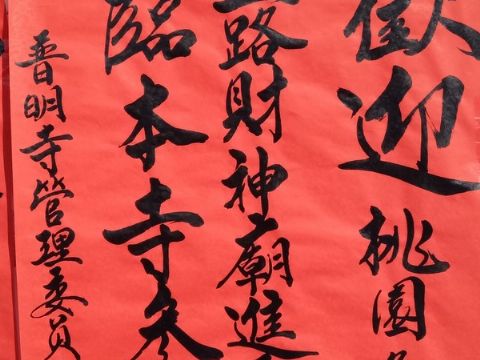 歡迎桃園
路財神廟進
臨本寺參
普明寺管理委員